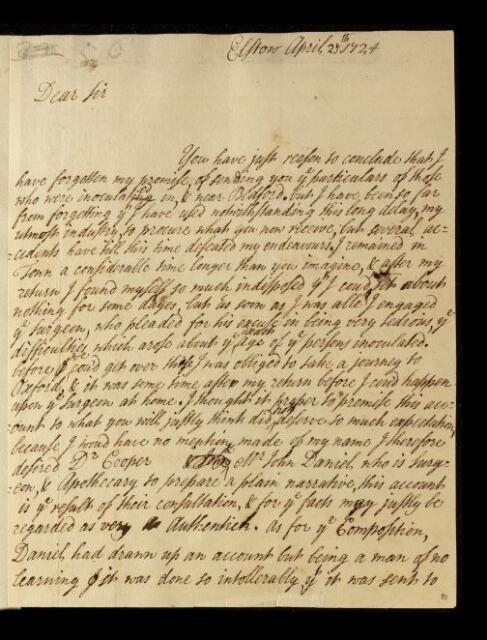 Elstow April 25th 1724
Dear Sir
You have just reason to conclude that I
have forgotten my promise, of sending you ye particulars of those
who were inoculated in, & near Bedford, but I have been so far
from forgetting yt I have used notwithstanding this long delay, my
utmost industry, to procure what you now receive, but several ac-
cidents have till this time defeated my endeavours. I remained in
Town a considerable time longer than you imagine, & after my
return I found myself so much indisposed yt I coud set about
nothing for some dayes, but as soon as I was able I engaged
ye surgeon, who pleaded for his excuse in being very tedious, ye
difficulties which arose about ye age of ye persons inoculated.
before I coud get over this I was obliged to take a journey to
Oxford, & it was some time after my return before I coud happen
upon ye surgeon at home. I thought it proper to premise this acc-
ount to what you will justly think did not deserve so much expectation,
because I woud have no mention made of my name I therefore
desired Dr Cooper & Mr John Daniel, who is surg-
eon, & Apothecary to prepare a plain narrative, this account
is ye result of their consultation, & for ye facts may justly be
regarded as very Authentick. As for ye Composition,
Daniel had drawn up an account but being a man of no
learning it was done so intollerably yt it was sent to